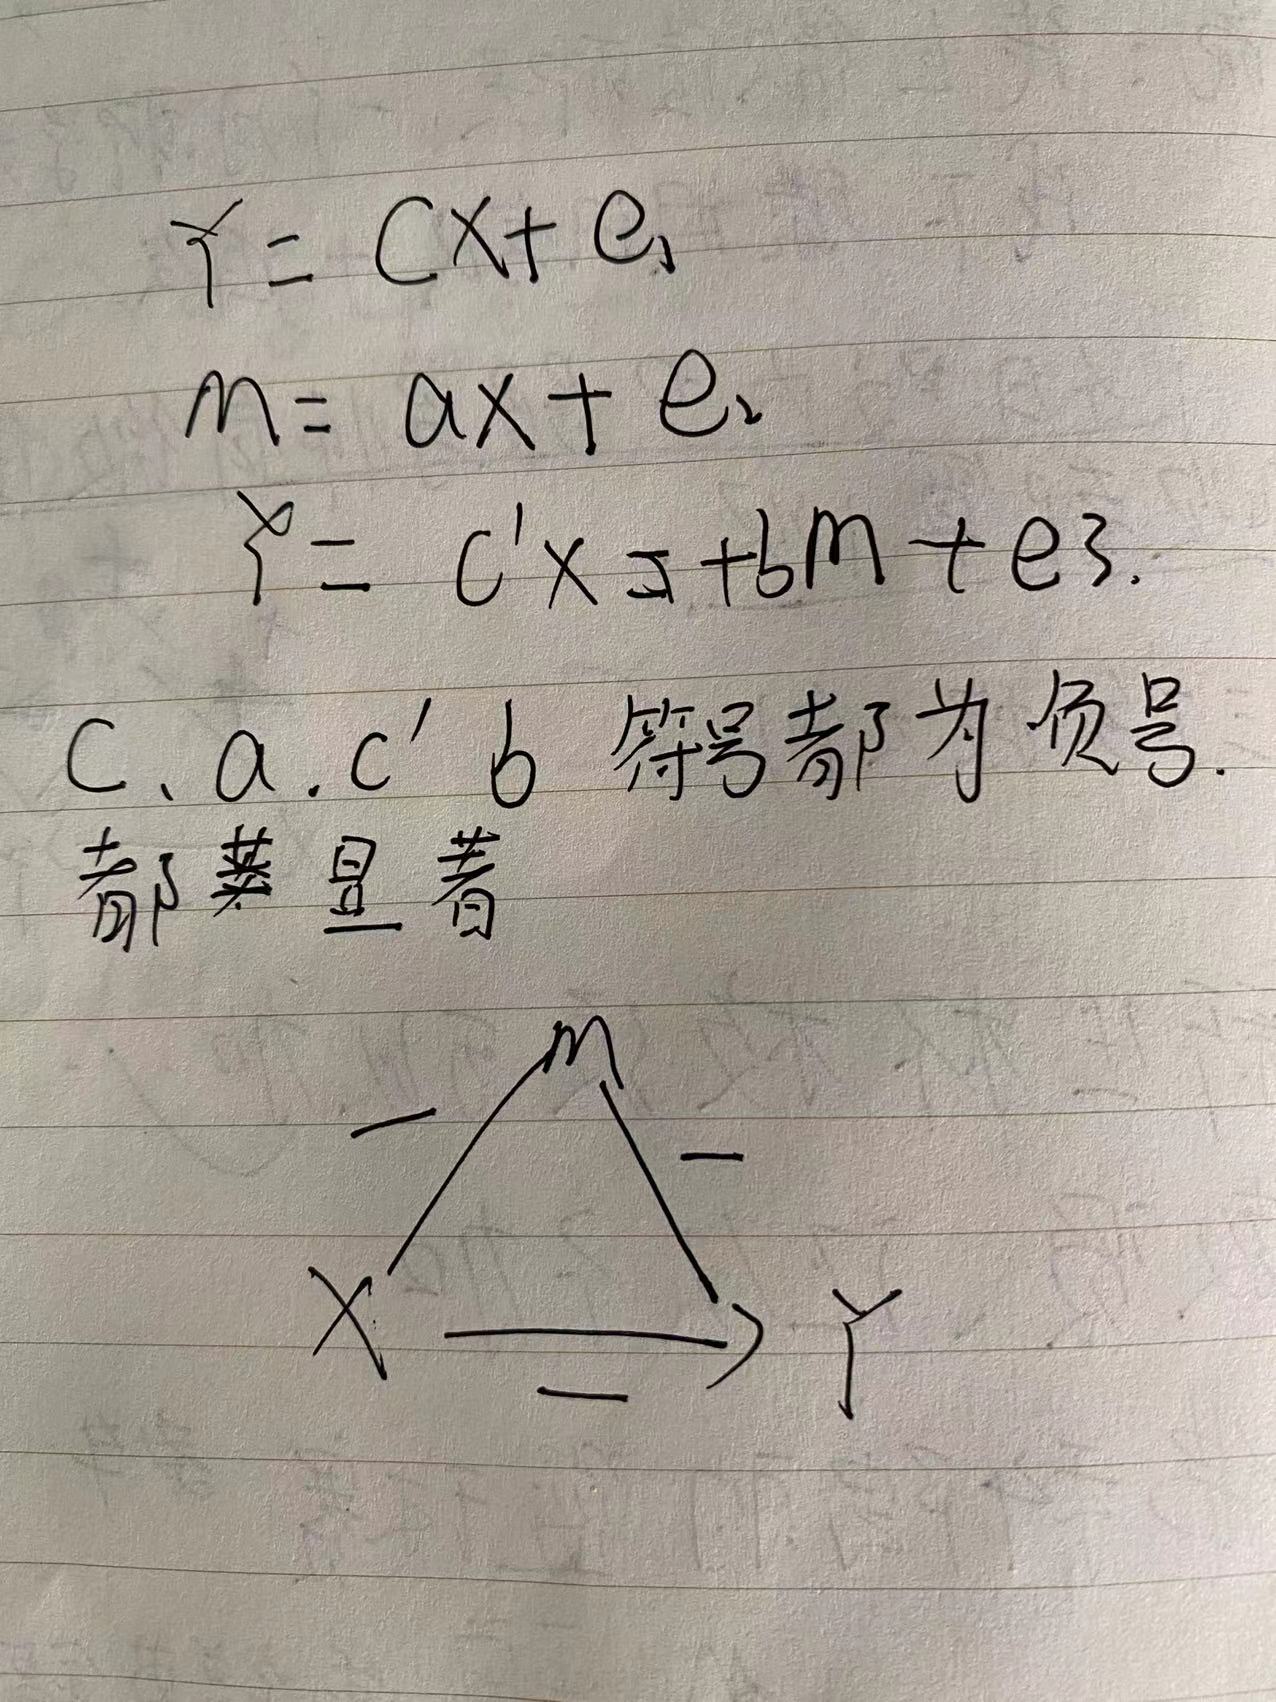 Y = CX + e₁
M = aX + e₂
Y = c'X + bM + e3.
C、a.c' b 符号都为负号.
都显着
M
— —
X Y
—